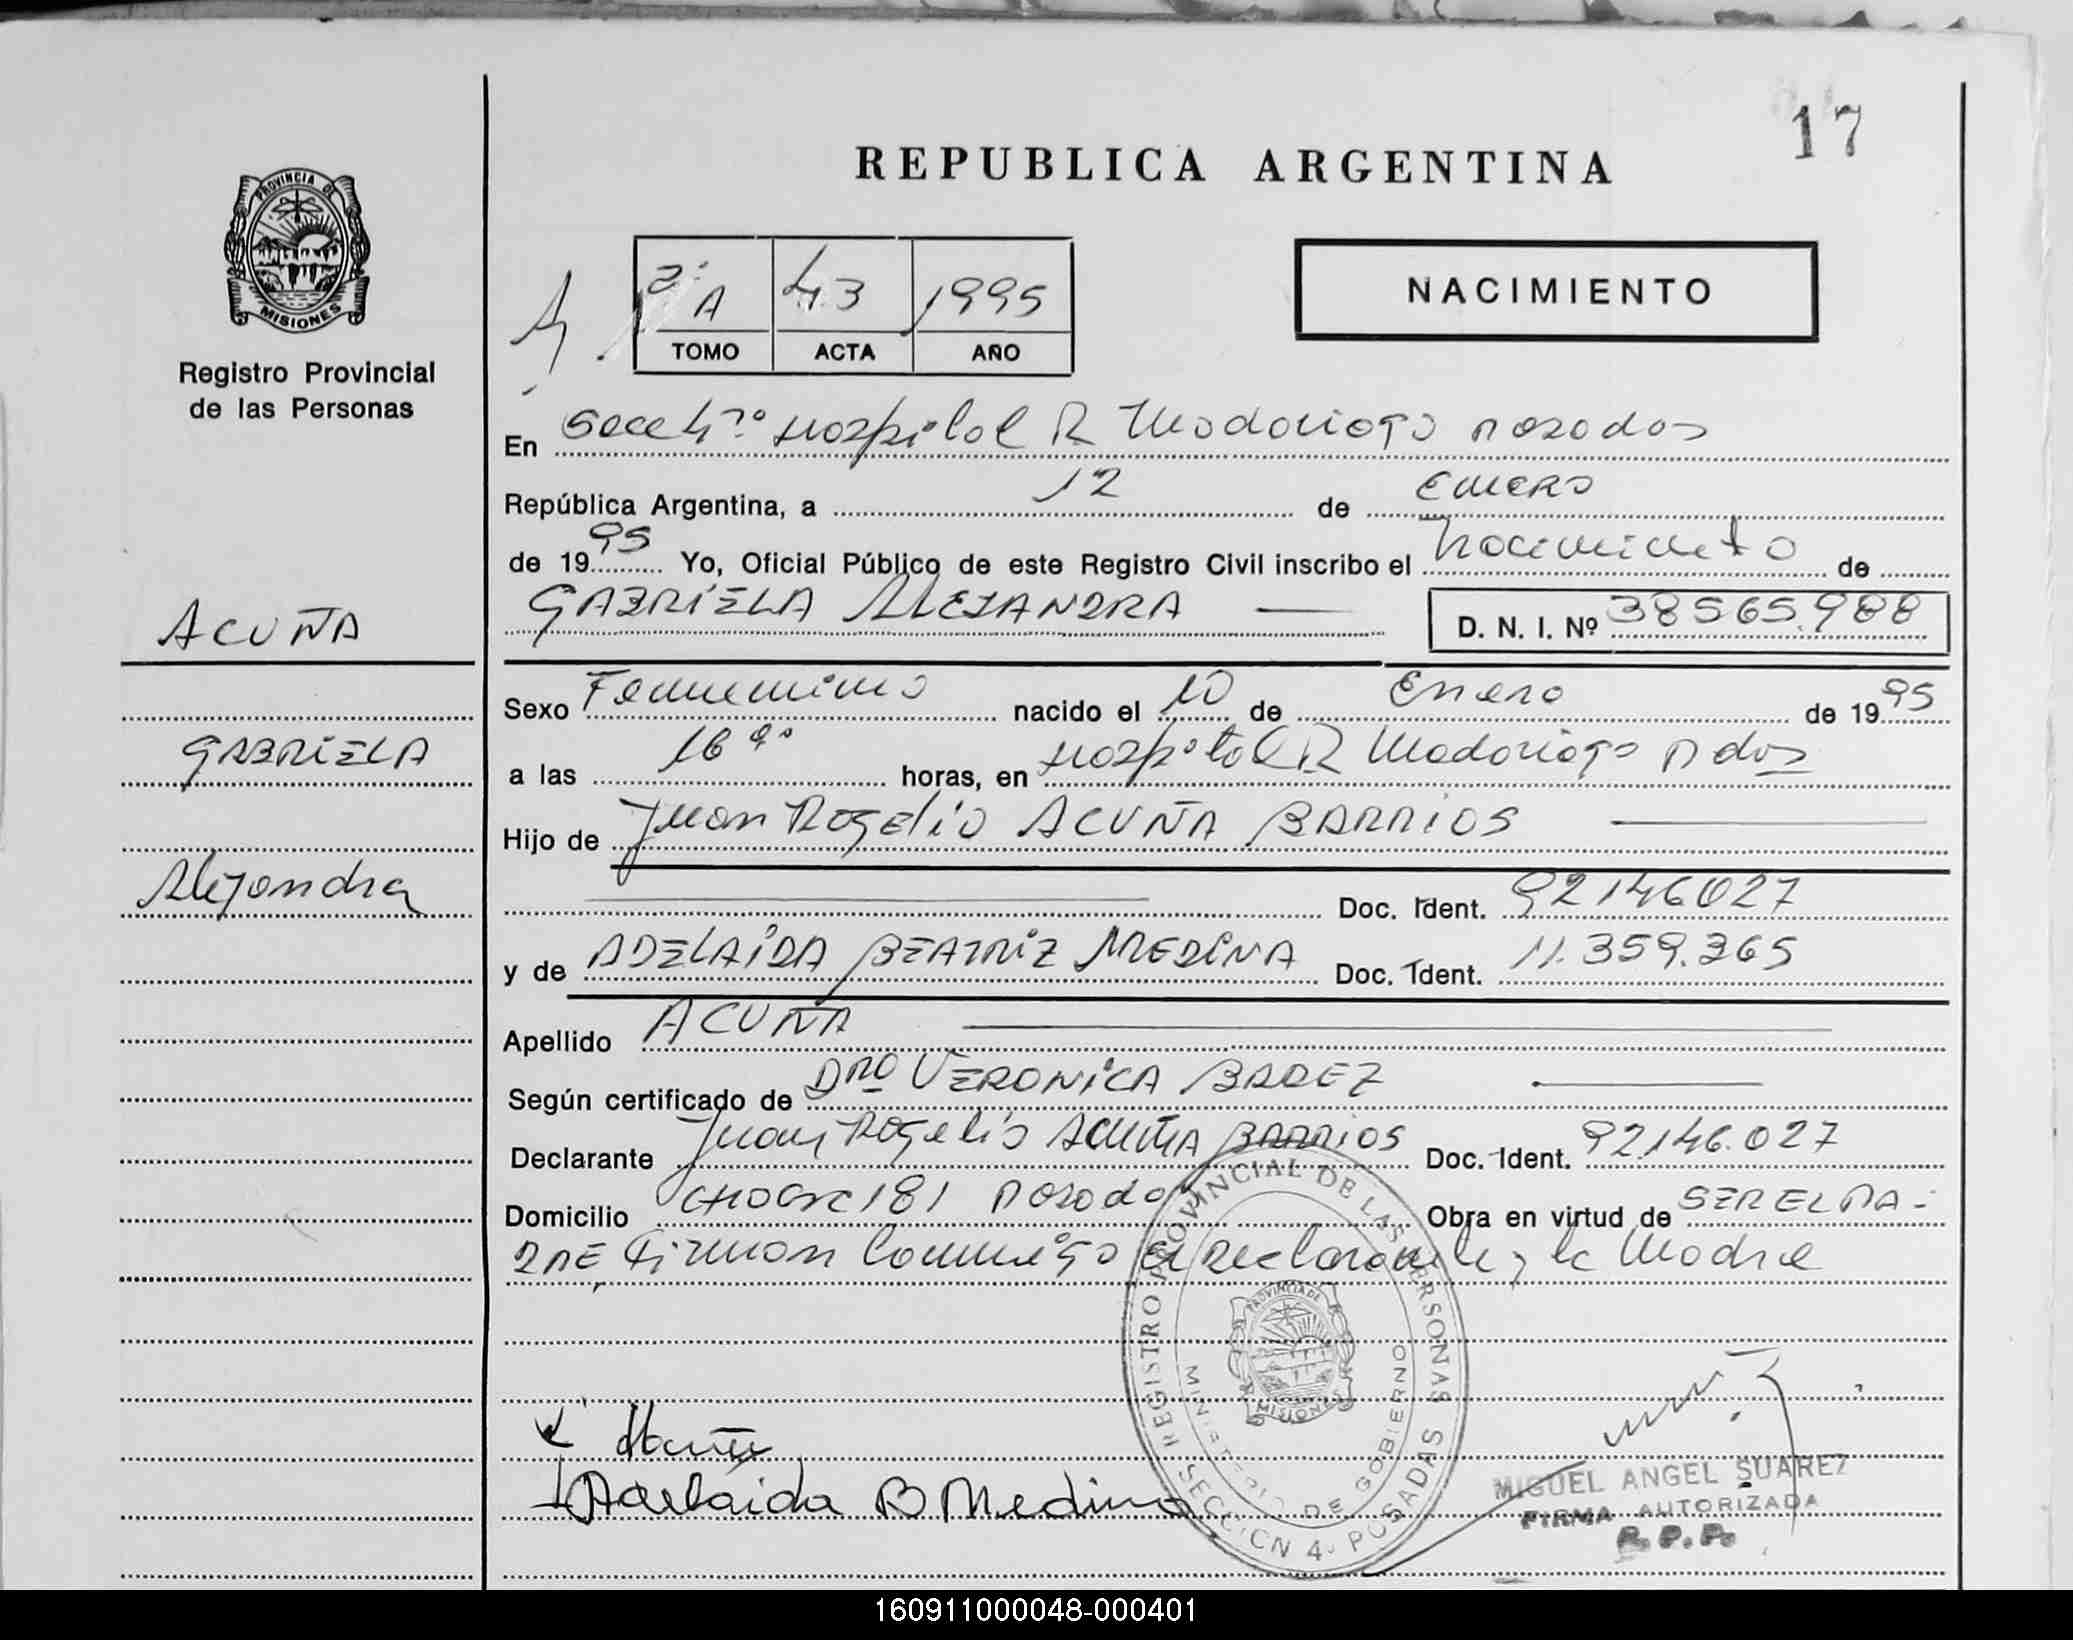 17
REPUBLICA ARGENTINA
PROVINCIA DE
MISIONES
Registro Provincial
de las Personas
2ª A 43 1995
TOMO ACTA AÑO
NACIMIENTO
En Secc 4ª Hospital R Madariaga Posadas
República Argentina, a 12 de Enero
de 1995 Yo, Oficial Público de este Registro Civil inscribo el nacimiento de
GABRIELA ALEJANDRA D. N. I. Nº 38565.988
ACUÑA
GABRIELA
Alejandra
Sexo Femenino nacido el 10 de Enero de 1995
a las 16 horas, en Hospital R Madariaga Pdas
Hijo de Juan Rogelio ACUÑA BARRIOS
Doc. Ident. 92146027
y de ADELAIDA BEATRIZ MEDINA Doc. Ident. 11.359.365
Apellido ACUÑA
Según certificado de Dra VERONICA
Declarante Juan Rogelio ACUÑA BARRIOS Doc. Ident. 92.146.027
Domicilio 181 Posadas Obra en virtud de SER EL PA-
DRE, Firman Conmigo el Declarante y la Madre
REGISTRO PROVINCIAL DE LAS PERSONAS
MINISTERIO DE GOBIERNO
PROVINCIA DE
MISIONES
SECCION 4ª POSADAS
Acuña
Adelaida B Medina
MIGUEL ANGEL SUAREZ
FIRMA AUTORIZADA
R.P.P.
160911000048-000401